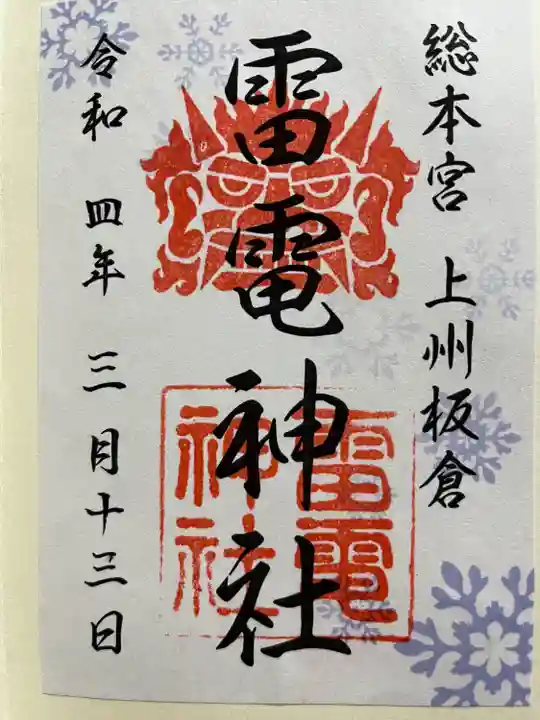 総本宮 上州板倉
雷電神社
雷電
神社
令和 四年 三月十三日